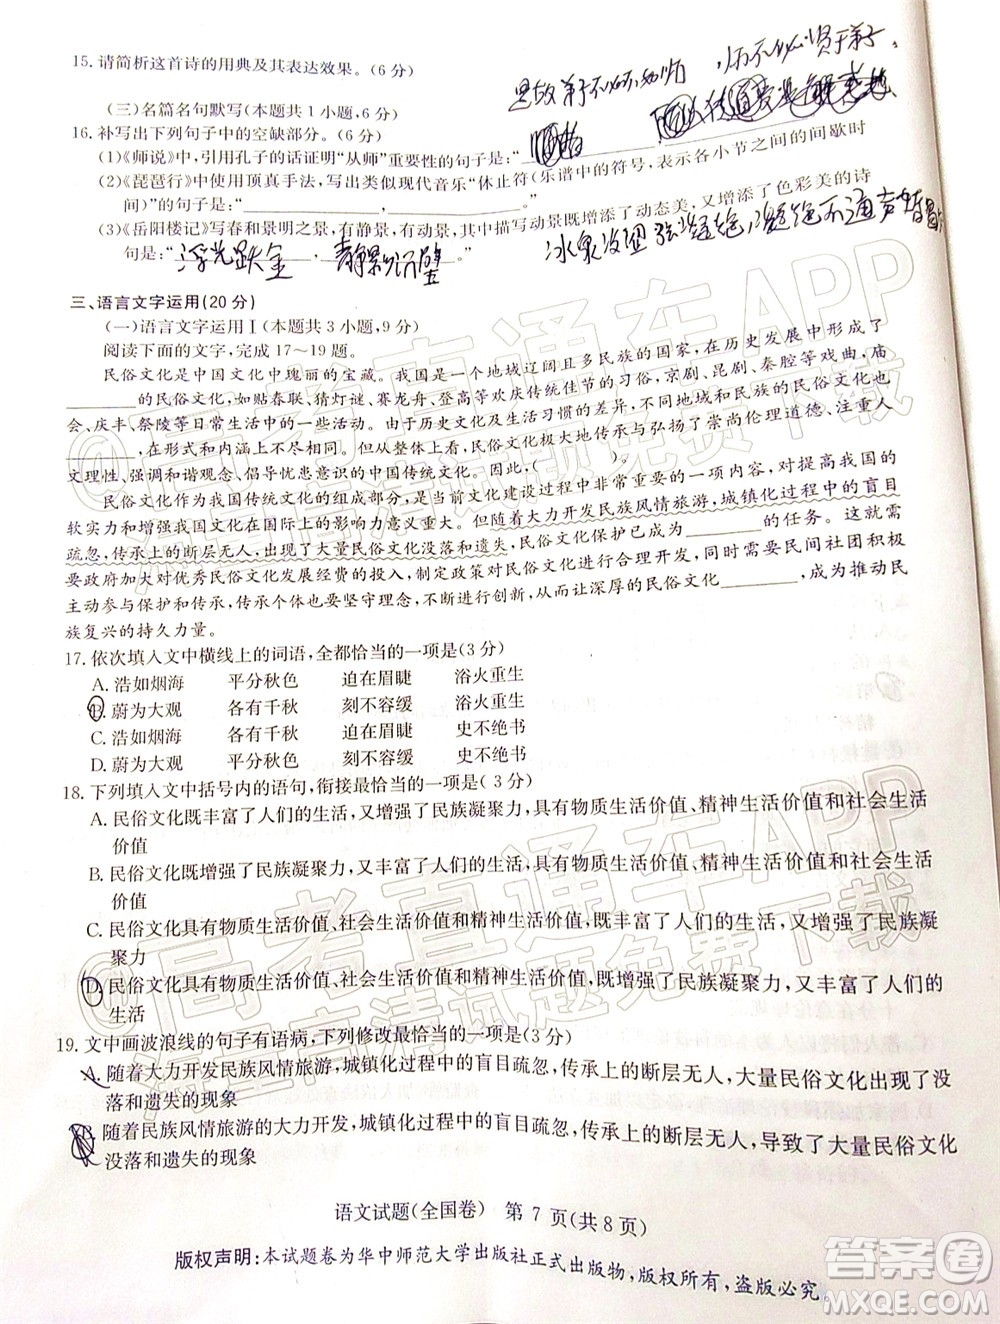 15.请简析这首诗的用典及其表达效果。(6分)
是故弟子不必不如师,师不必贤于弟子,
(三)名篇名句默写(本题共1小题,6分)
16.补写出下列句子中的空缺部分。(6分)
(1)《师说》中,引用孔子的话证明“从师”重要性的句子是:“
(2)《琵琶行》中使用顶真手法,写出类似现代音乐“休止符(乐谱中的符号,表示各小节之间的间歇时
间)”的句子是:“__________,__________
(3)《岳阳楼记》写春和景明之景,有静景,有动景,其中描写动景既增添了动态美,又增添了色彩美的诗
句是:“浮光跃金,静影沉璧”。
冰泉冷涩弦凝绝,凝绝不通声暂
三、语言文字运用(20分)
(一)语言文字运用Ⅰ(本题共3小题,9分)
阅读下面的文字,完成17~19题。
民俗文化是中国文化中瑰丽的宝藏。我国是一个地域辽阔且多民族的国家,在历史发展中形成了
________的民俗文化,如贴春联、猜灯谜、赛龙舟、登高等欢庆节日的习俗,京剧、昆剧、秦腔等戏曲,庙
会、庆丰、祭陵等日常生活中的一些活动。由于历史文化及生活习惯的差异,每个地域和民族的民俗文化
________,在形式和内涵上有所不同。但从整体上看,民俗文化中大多体现了崇尚伦理道德、注重人
文理性、强调和谐观念、倡导忧患意识的中国传统文化。因此,(            )。
民俗文化作为我国传统文化的组成部分,是当前文化建设过程中最重要的一项内容,对提高我国的
软实力和增强我国文化在国际上的影响力意义重大。但是,随着大力开发民族风情旅游,城镇化过程中的盲目
疏忽,传承上的断层无人,出现了大量民俗文化没落和遗失,民俗文化保护已成为________的任务。这需
要政府加大对优秀民俗文化的经费的投入,制定政策对民俗文化进行合理开发,需要民间社团积极
主动参与保护和传承,传承主体也要坚守理念,不断进行创新,从而让深厚的民俗文化________,成为推动民
族复兴的持久力量。
17.依次填入文中横线上的词语,全都恰当的一项是(3分)
A.浩如烟海 平分秋色 迫在眉睫 浴火重生
B.蔚为大观 各有千秋 刻不容缓 浴火重生
C.浩如烟海 各有千秋 迫在眉睫 史不绝书
D.蔚为大观 平分秋色 刻不容缓 史不绝书
18.下列填入文中括号内的语句,衔接最恰当的一项是(3分)
A.民俗文化既丰富了人们的生活,又增强了民族凝聚力,具有物质生活价值、精神生活价值和社会生活
价值
B.民俗文化既增强了民族凝聚力,又丰富了人们的生活,具有物质生活价值、精神生活价值和社会生活
价值
C.民俗文化具有物质生活价值、社会生活价值和精神生活价值,既丰富了人们的生活,又增强了民族凝
聚力
D.民俗文化具有物质生活价值、社会生活价值和精神生活价值,既增强了民族凝聚力,又丰富了人们的
生活
19.文中画波浪线的句子有语病,下列修改最恰当的一项是(3分)
A.随着大力开发民族风情旅游,城镇化过程中的盲目疏忽,传承上的断层无人,大量民俗文化出现了没
落和遗失的现象
B.随着民族风情旅游的大力开发,城镇化过程中的盲目疏忽,传承上的断层无人,导致了大量民俗文化
没落和遗失的现象
语文试题(全国卷) 第7页(共8页)
版权声明:本试题卷为华中师范大学出版社正式出版物,版权所有,盗版必究。
@高考直通车APP
海量高清试题免费下载
@高考直通车APP
海量高清试题免费下载
答案圈
MXQE.COM